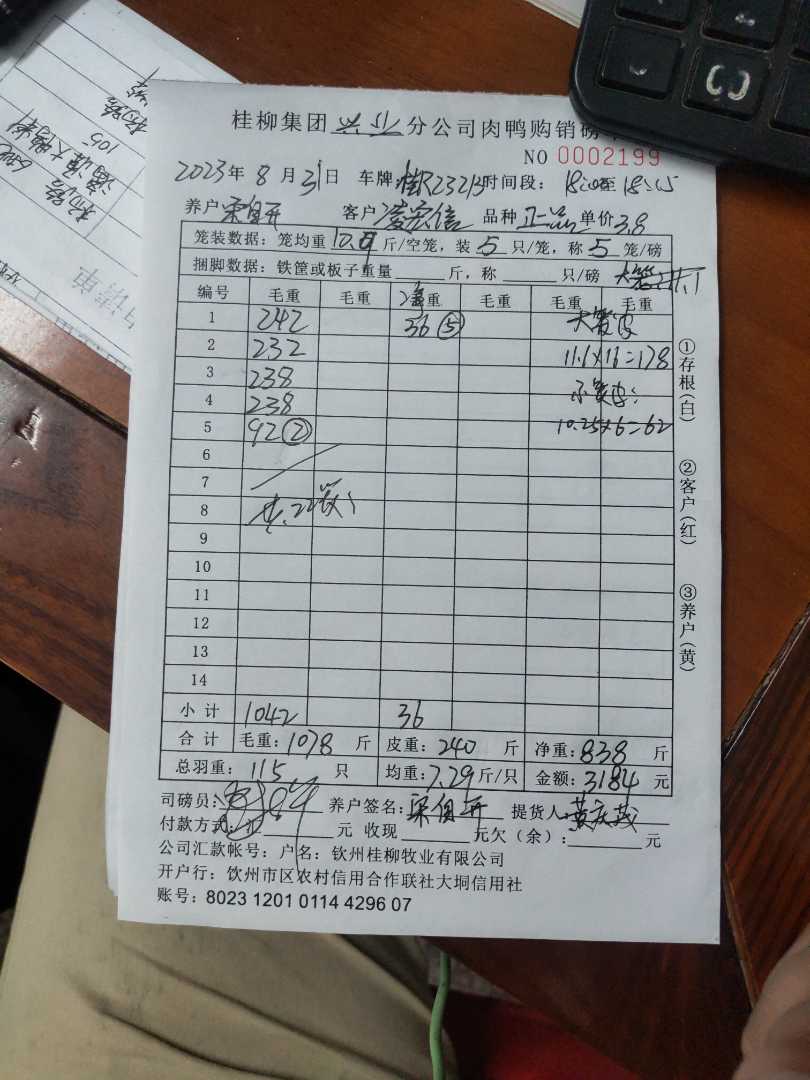 桂柳集团 兴业 分公司肉鸭购销磅
NO 0002199
2023年 8月 31日 车牌: 桂R23213 时间段: 18:00至18:15
养户 宋自开 客户 凌宏信 品种 正品 单价 3.8
笼装数据: 笼均重 斤/空笼, 装 5 只/笼, 称 5 笼/磅
捆脚数据: 铁筐或板子重量 斤, 称 只/磅
编号 毛重 毛重 净重 毛重 毛重 毛重
1 242 36 ⑤
2 232 11.1×16=178
3 238
4 238
5 92 ② 10.25×6=62
6
7
8 共:22笼
9
10
11
12
13
14
小计 1042 36
合计 毛重: 1078 斤 皮重: 240 斤 净重: 838 斤
总羽重: 115 只 均重: 7.29 斤/只 金额: 3184 元
司磅员: 养户签名: 宋自开 提货人: 黄庆茂
付款方式: 元 收现 元欠(余): 元
公司汇款帐号: 户名: 钦州桂柳牧业有限公司
开户行: 钦州市区农村信用合作联社大垌信用社
账号: 8023 1201 0114 4296 07
①存根(白)
②客户(红)
③养户(黄)
105